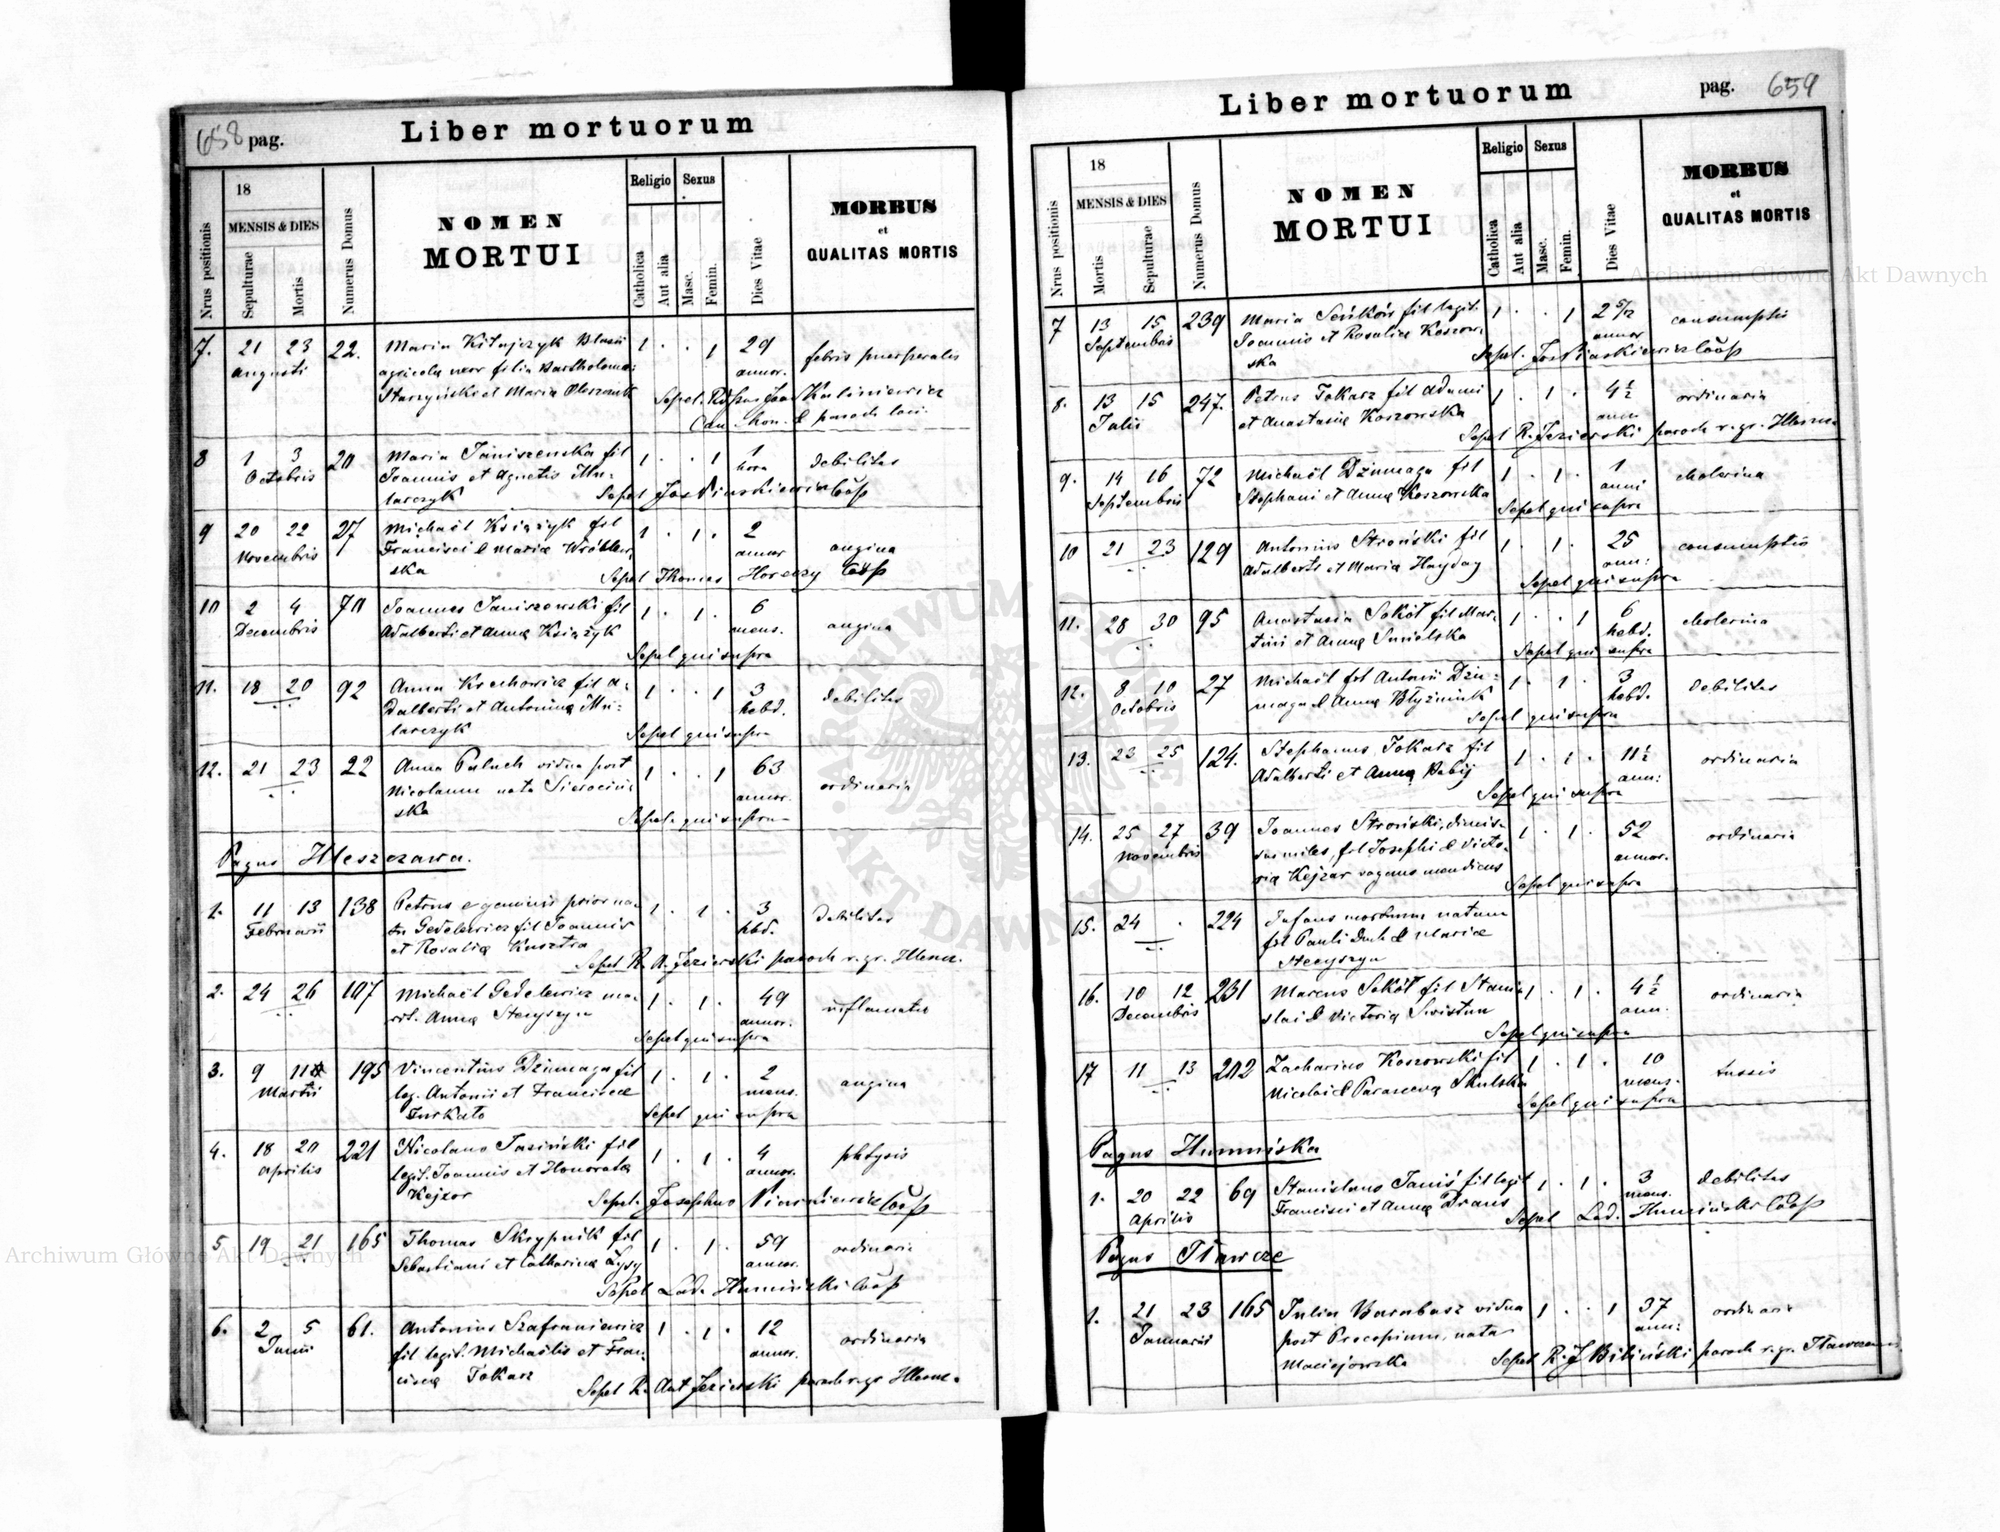 658 pag.
Liber mortuorum
Nrus positionis
18
MENSIS & DIES
Sepulturae
Mortis
Numerus Domus
NOMEN
MORTUI
Religio
Sexus
Catholica
Aut alia
Masc.
Femin.
Dies Vitae
MORBUS
et
QUALITAS MORTIS
7. 21 23 22. Maria Kitajczyk Blasii 1 . . 1 29 febris puerperalis
Augusti agricolae uxor filia Bartholomaei annor.
Starzyński et Maria
8 1 3 20 Maria Janiszewska fil 1 . . 1 1 debilitas
Octobris Joannis et Agnetis Mu- hora
larczyk Sepel Jos Coop
9 20 22 27 Michaël Książyk fil 1 . 1 . 2 angina
Novembris Francisci & Maria Wróblew annor
ska Sepel Thomas Coop
10 2 4 70 Joannes Janiszewski fil 1 . 1 . 6 angina
Decembris Adalberti et Anna Książyk mens.
Sepel qui supra
11. 18 20 92 Anna Krechowicz fil A- 1 . . 1 3 debilitas
dalberti et Antonina Mu- hebd.
larczyk Sepel qui supra
12. 21 23 22 Anna Paluch vidua post 1 . . 1 63 ordinaria
Nicolaum nata Sierociń annor.
ska Sepel. qui supra
Pagus Hleszczawa.
1. 11 13 138 Petrus e geminis prior na- 1 . 1 . 3 debilitas
Februarii tus Gedelewicz fil Joannis hbd.
et Rosalia Kusztra Sepel R. A. Jezierski paroch r. gr. Hleszcz.
2. 24 26 107 Michaël Gedelewicz ma- 1 . 1 . 49 inflamatio
rit. Anna Stecyszyn annor.
Sepel qui supra
3. 9 11 195 Vincentius Dziumaga fil 1 . 1 . 2 angina
Martii leg. Antonii et Francisca mens.
Turkało Sepel qui supra
4. 18 20 221 Nicolaus Jasiński fil 1 . 1 . 4 phtysis
Aprilis legit. Joannis et Honorata annor.
Kejzor Sepel. Josephus Coop
5 19 21 165 Thomas Skrypnik fil 1 . 1 . 59 ordinaria
Sebastiani et Catharina Łysy annor.
Sepel Lad. Humiński Coop
6. 2 5 61. Antonius Szafraniewicz 1 . 1 . 12 ordinaria
Junii fil legit. Michaëlis et Fran- annor.
cisca Tokarz Sepel R. Ant Jezierski paroch r. gr Hleszcz.
Liber mortuorum
pag. 659
Nrus positionis
18
MENSIS & DIES
Mortis
Sepulturae
Numerus Domus
NOMEN
MORTUI
Religio
Sexus
Catholica
Aut alia
Masc.
Femin.
Dies Vitae
MORBUS
et
QUALITAS MORTIS
7 13 15 239 Maria Seńków fil legit. 1 . . 1 2 5/12 consumptio
Septembris Joannis et Rosalia Koszow- annor
ska Sepel. Jos Coop
8. 13 15 247. Petrus Tokarz fil Adami 1 . 1 . 4½ ordinaria
Julii et Anastasia Koszowska anni
Sepel R. Jezierski paroch r. gr. Hleszcz
9. 14 16 72 Michaël Dziumaga fil 1 . 1 . 1 cholerina
Septembris Stephani et Anna Koszowska anni
Sepel qui supra
10 21 23 129 Antonius Stroński fil 1 . 1 . 25 consumptio
Adalberti et Maria Hayday ann:
Sepel qui supra
11. 28 30 95 Anastasia Sokół fil Mar- 1 . . 1 6 cholerina
tini et Anna hebd.
Sepel qui supra
12. 8 10 27 Michaël fil Antonii Dziu- 1 . 1 . 3 debilitas
Octobris maga & Anna Błyźniuk hebd.
Sepel qui supra
13. 23 25 124. Stephanus Tokarz fil 1 . 1 . 11½ ordinaria
Adalberti et Anna Babij ann:
Sepel qui supra
14. 25 27 39 Joannes Stroński, dimis- 1 . 1 . 52 ordinaria
Novembris sus miles, fil Josephi & Victo- annor.
ria Kejzar vagans mendicus Sepel qui supra
15. 24 . 224 Infans mortuum natum
fil Pauli Duh & Maria
Stecyszyn
16. 10 12 231 Marcus Sokół fil Stanis- 1 . 1 . 4½ ordinaria
Decembris slai & Victoria Świstun ann.
Sepel qui supra
17 11 13 202 Zacharias Koszowski fil 1 . 1 . 10 tussis
Nicolai & Parascewa Skulska mens.
Sepel qui supra
Pagus Humniska
1. 20 22 69 Stanislaus Janiś fil legit 1 . 1 . 3 debilitas
Aprilis Francisci et Anna Draus mens.
Sepel Lad. Humiński Coop
Pagus Iławcze
1. 21 23 165 Julia Barabasz vidua 1 . . 1 37 ordinaria
Januarii post Procopium, nata ann:
Maciejowska Sepel R. J Biliński paroch r. gr. Iławczens
Archiwum Główne Akt Dawnych
Archiwum Główne Akt Dawnych
ARCHIWUM GŁÓWNE AKT DAWNYCH